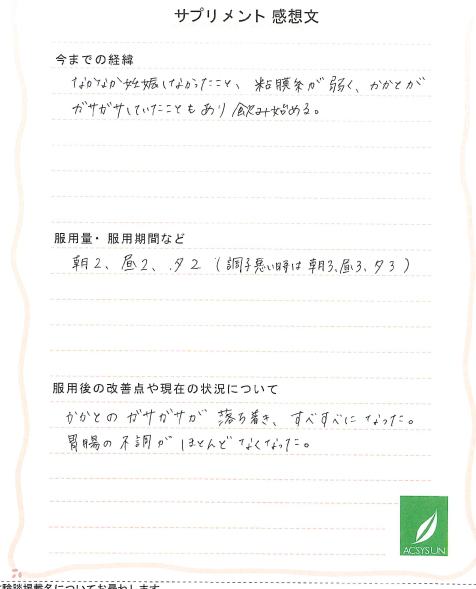 サプリメント 感想文
今までの経緯
なかなか妊娠しなかったこと、粘膜系が弱く、かかとが
ガサガサしていたこともあり飲み始める。
服用量・服用期間など
朝2、昼2、夕2(調子悪い時は朝3、昼3、夕3)
服用後の改善点や現在の状況について
かかとのガサガサが落ち着き、すべすべになった。
胃腸の不調がほとんどなくなった。
ACSYSUN
験談掲載名についてお尋ねします